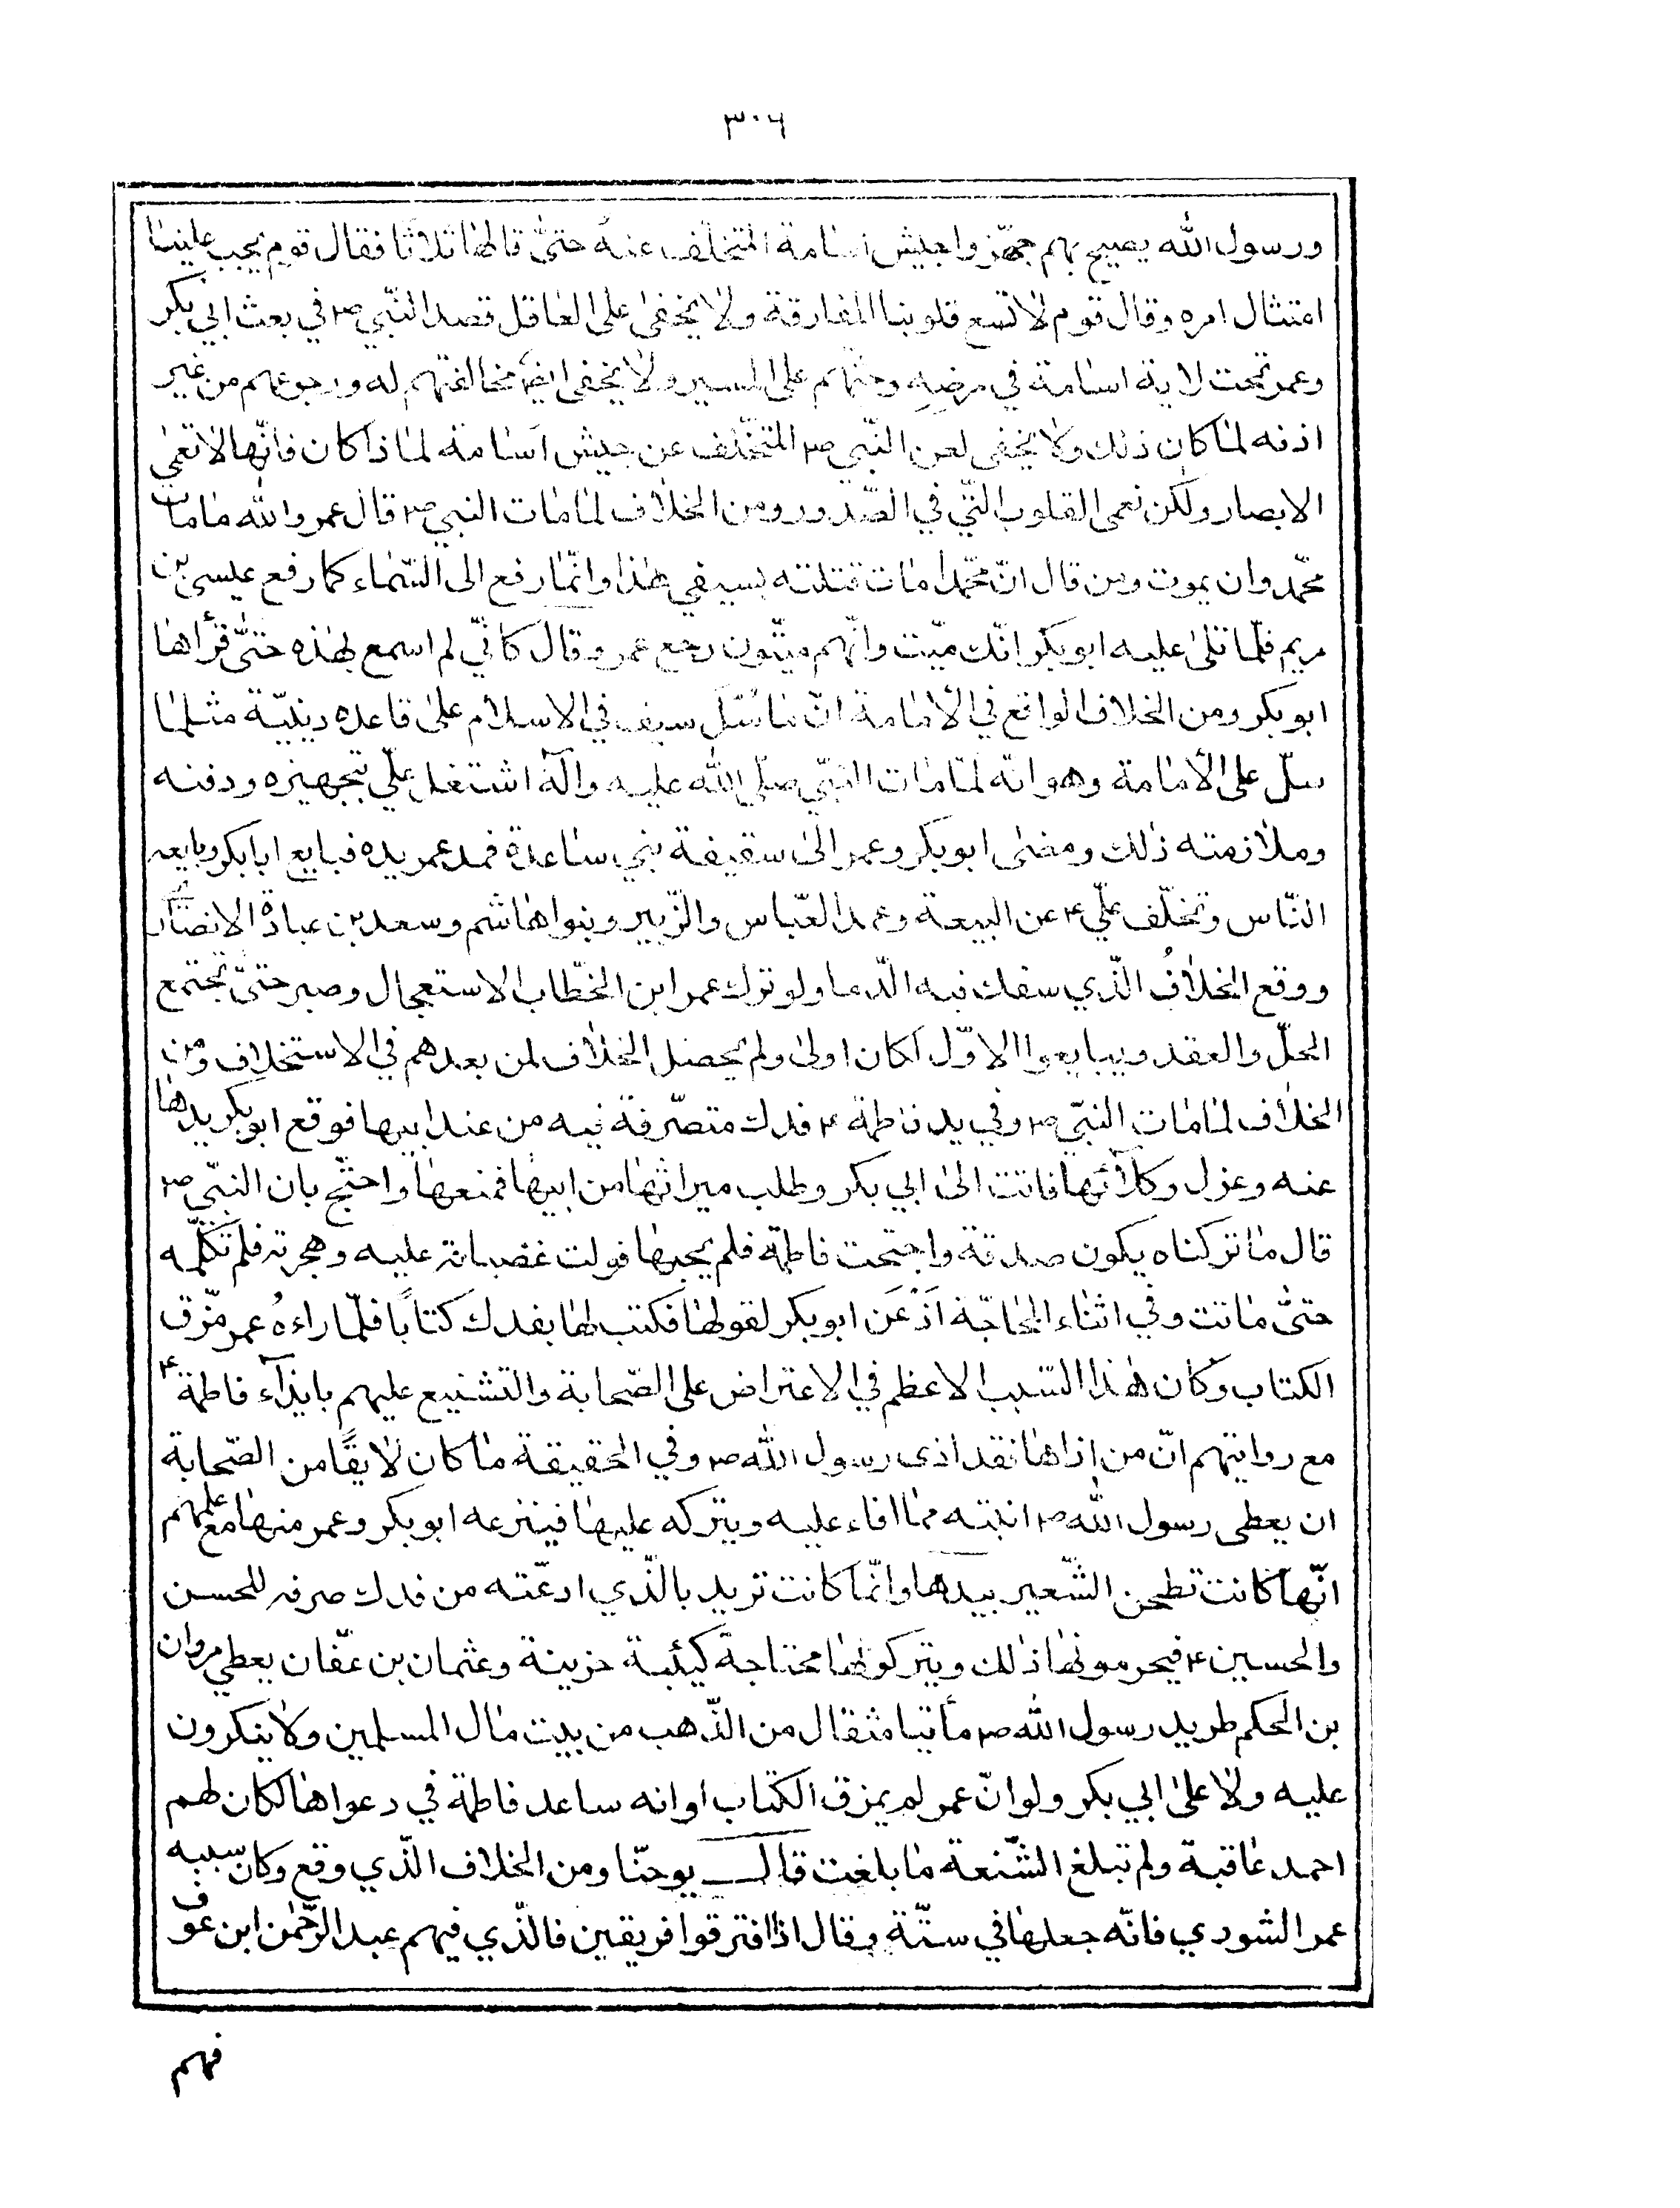 ٣٠٦
ورسول الله يصيح بهم جهّزوا جيش اسامة المتخلف عنه حتّى قالها ثلاثا فقال قوم يجب علينا
امتثال امره وقال قوم لا تسع قلوبنا المفارقة ولا يخفى على العاقل قصد النّبي ص في بعث ابي بكر
وعمر تحت لاية اسامة في مرضه وحثهم على المسير ولا يخفى ايضا مخالفتهم له ورجوعهم من غير
اذنه لما كان ذلك ولا يخفى لعن النّبي ص المتخّلف عن جيش اسامة لماذا كان فانّها لا تعمى
الابصار ولكن تعمى القلوب التّي في الصّدور ومن الخلاف لما مات النبي ص قال عمر والله ما مات
محمّد وان يموت ومن قال انّ محمّدا مات قتلته بسيفي هذا وانّما رفع الى السّماء كما رفع عيسى بن
مريم فلمّا تلى عليه ابوبكر انّك ميّت وانّهم ميّتون رجع عمر وقال كانّي لم اسمع بهذه حتّى قرأها
ابوبكر ومن الخلاف الواقع في الأمامة انّ ما سّل سيف في الاسلام على قاعده دينيّة مثلما
سلّ على الأمامة وهو انّه لمّا مات النّبي صلّى الله عليه وآله اشتغل عليّ بتجهيزه ودفنه
وملازمته ذلك ومضى ابوبكر وعمر الى سقيفة بني ساعدة فمد عمر يده فبايع ابابكر وبايعه
النّاس وتخلّف عليّ ع عن البيعة وعمه العبّاس والزّبير وبنوا هاشم وسعد بن عبادة الانصاري
ووقع الخلاف الّذي سفك فيه الّدما ولو ترك عمر ابن الخطّاب الاستعجال وصبر حتىّ تجتمع
الحلّ والعقد ويبايعوا الاوّل لكان اولى ولم يحصل الخلاف لمن بعدهم في الاستخلاف ومن
الخلاف لما مات النبّي ص وفي يد فاطمة ع فدك متصّرفة فيه من عند ابيها فوقع ابوبكر يدها
عنه وعزل وكلآئها فاتت الى ابي بكر وطلب ميراثها من ابيها فمنعها واحتّج بان النبّي ص
قال ما تركناه يكون صدقة واحتجت فاطمة فلم يجبها فولت غضبانة عليه وهجرته فلم تكلّمه
حتىّ ماتت وفي اثناء المحاجّة اذعن ابوبكر لقولها فكتب لها بفدك كتابًا فلمّا راءه عمر مزّق
الكتاب وكان هذا السّبب الاعظم في الاعتراض على الصّحابة والتشنيع عليهم بايذآء فاطمة ع
مع روايتهم انّ من اذاها فقد اذى رسول الله ص وفي الحقيقة ما كان لايقًا من الصّحابة
ان يعطى رسول الله ص ابنته مما افاء عليه ويتركه عليها فينزعه ابوبكر وعمر منها مع علمهم
انّها كانت تطحن الشّعير بيدها وانّما كانت تريد بالّذي ادعّته من فدك صرفه للحسن
والحسين ع فيحرمونها ذلك ويتركونها محتاجة كيئبة حزينة وعثمان بن عفّان يعطي مروان
بن الحكم طريد رسول الله ص مأتيا مثقال من الذّهب من بيت مال المسلمين ولا ينكرون
عليه ولا على ابي بكر ولو انّ عمر لم يمزق الكتاب او انه ساعد فاطمة في دعواها لكان لهم
احمد عاقبة ولم تبلغ الشّنعة ما بلغت قال يوحنّا ومن الخلاف الّذي وقع وكان سببه
عمر الشورى فانّه جعلها في ستّة وقال اذا افترقوا فريقين فالّذي فيهم عبد الرّحمن ابن عوف
فهم